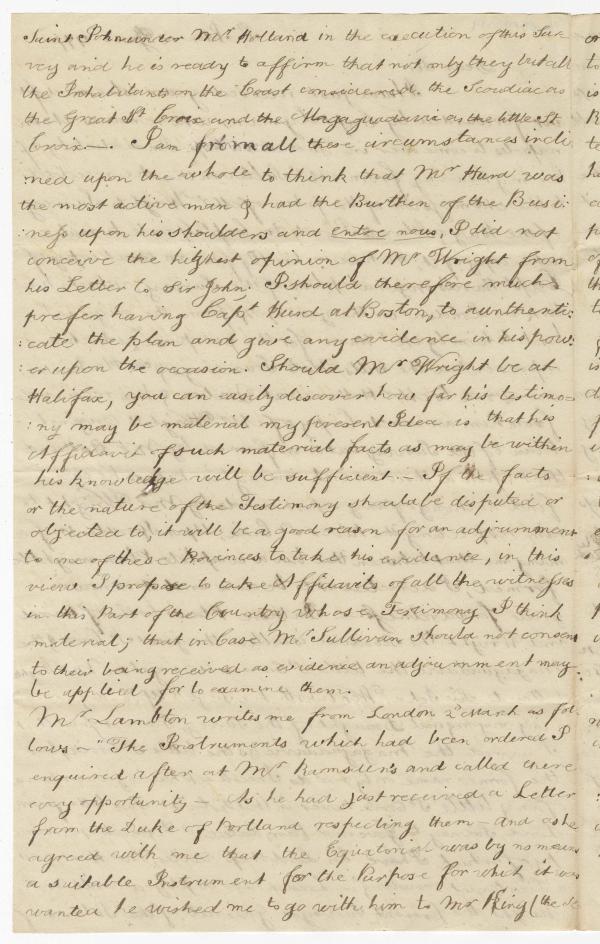 Saint John under Mr Holland in the execution of this Sur-
vey and he is ready to affirm that not only they but all
the Inhabitants on the Coast considered the Scoudiac as
the Great St Croix and the Magaguadavic as the little St
Croix —. I am from all these circumstances incli
:ned upon the whole to think that Mr Hurd was
the most active man & had the Burthen of the Busi:
:ness upon his shoulders and entre nous, I did not
conceive the highest opinion of Mr Wright from
his Letter to Sir John. I should therefore much
prefer having Capt Hurd at Boston, to aunthenti:
:cate the plan and give any evidence in his pow:
er upon the occasion. Should Mr Wright be at
Halifax, you can easily discover how far his testimo=
:ny may be material my present Idea is that his
Affidavit of such material facts as may be within
his knowledge will be sufficient. — If the facts
or the nature of the Testimony should be disputed or
objected to, it will be a good reason for an adjournment
to one of these Provinces to take his evidence, in this
view I propose to take Affidavits of all the witnesses
in this Part of the Country whose Testimony I think
material; that in Case Mr Sullivan should not consent
to their being received as evidence an adjournment may
be applied for to examine them.
Mr Lambton writes me from London 2d March as fol-
lows — "The Instruments which had been ordered I
enquired after at Mr Ramsden's and called there
every opportunity — As he had just received a Letter
from the Duke of Portland respecting them — and as he
agreed with me that the Equatorial was by no means
a suitable Instrument for the Purpose for which it was
wanted he wished me to go with him to Mr King (the